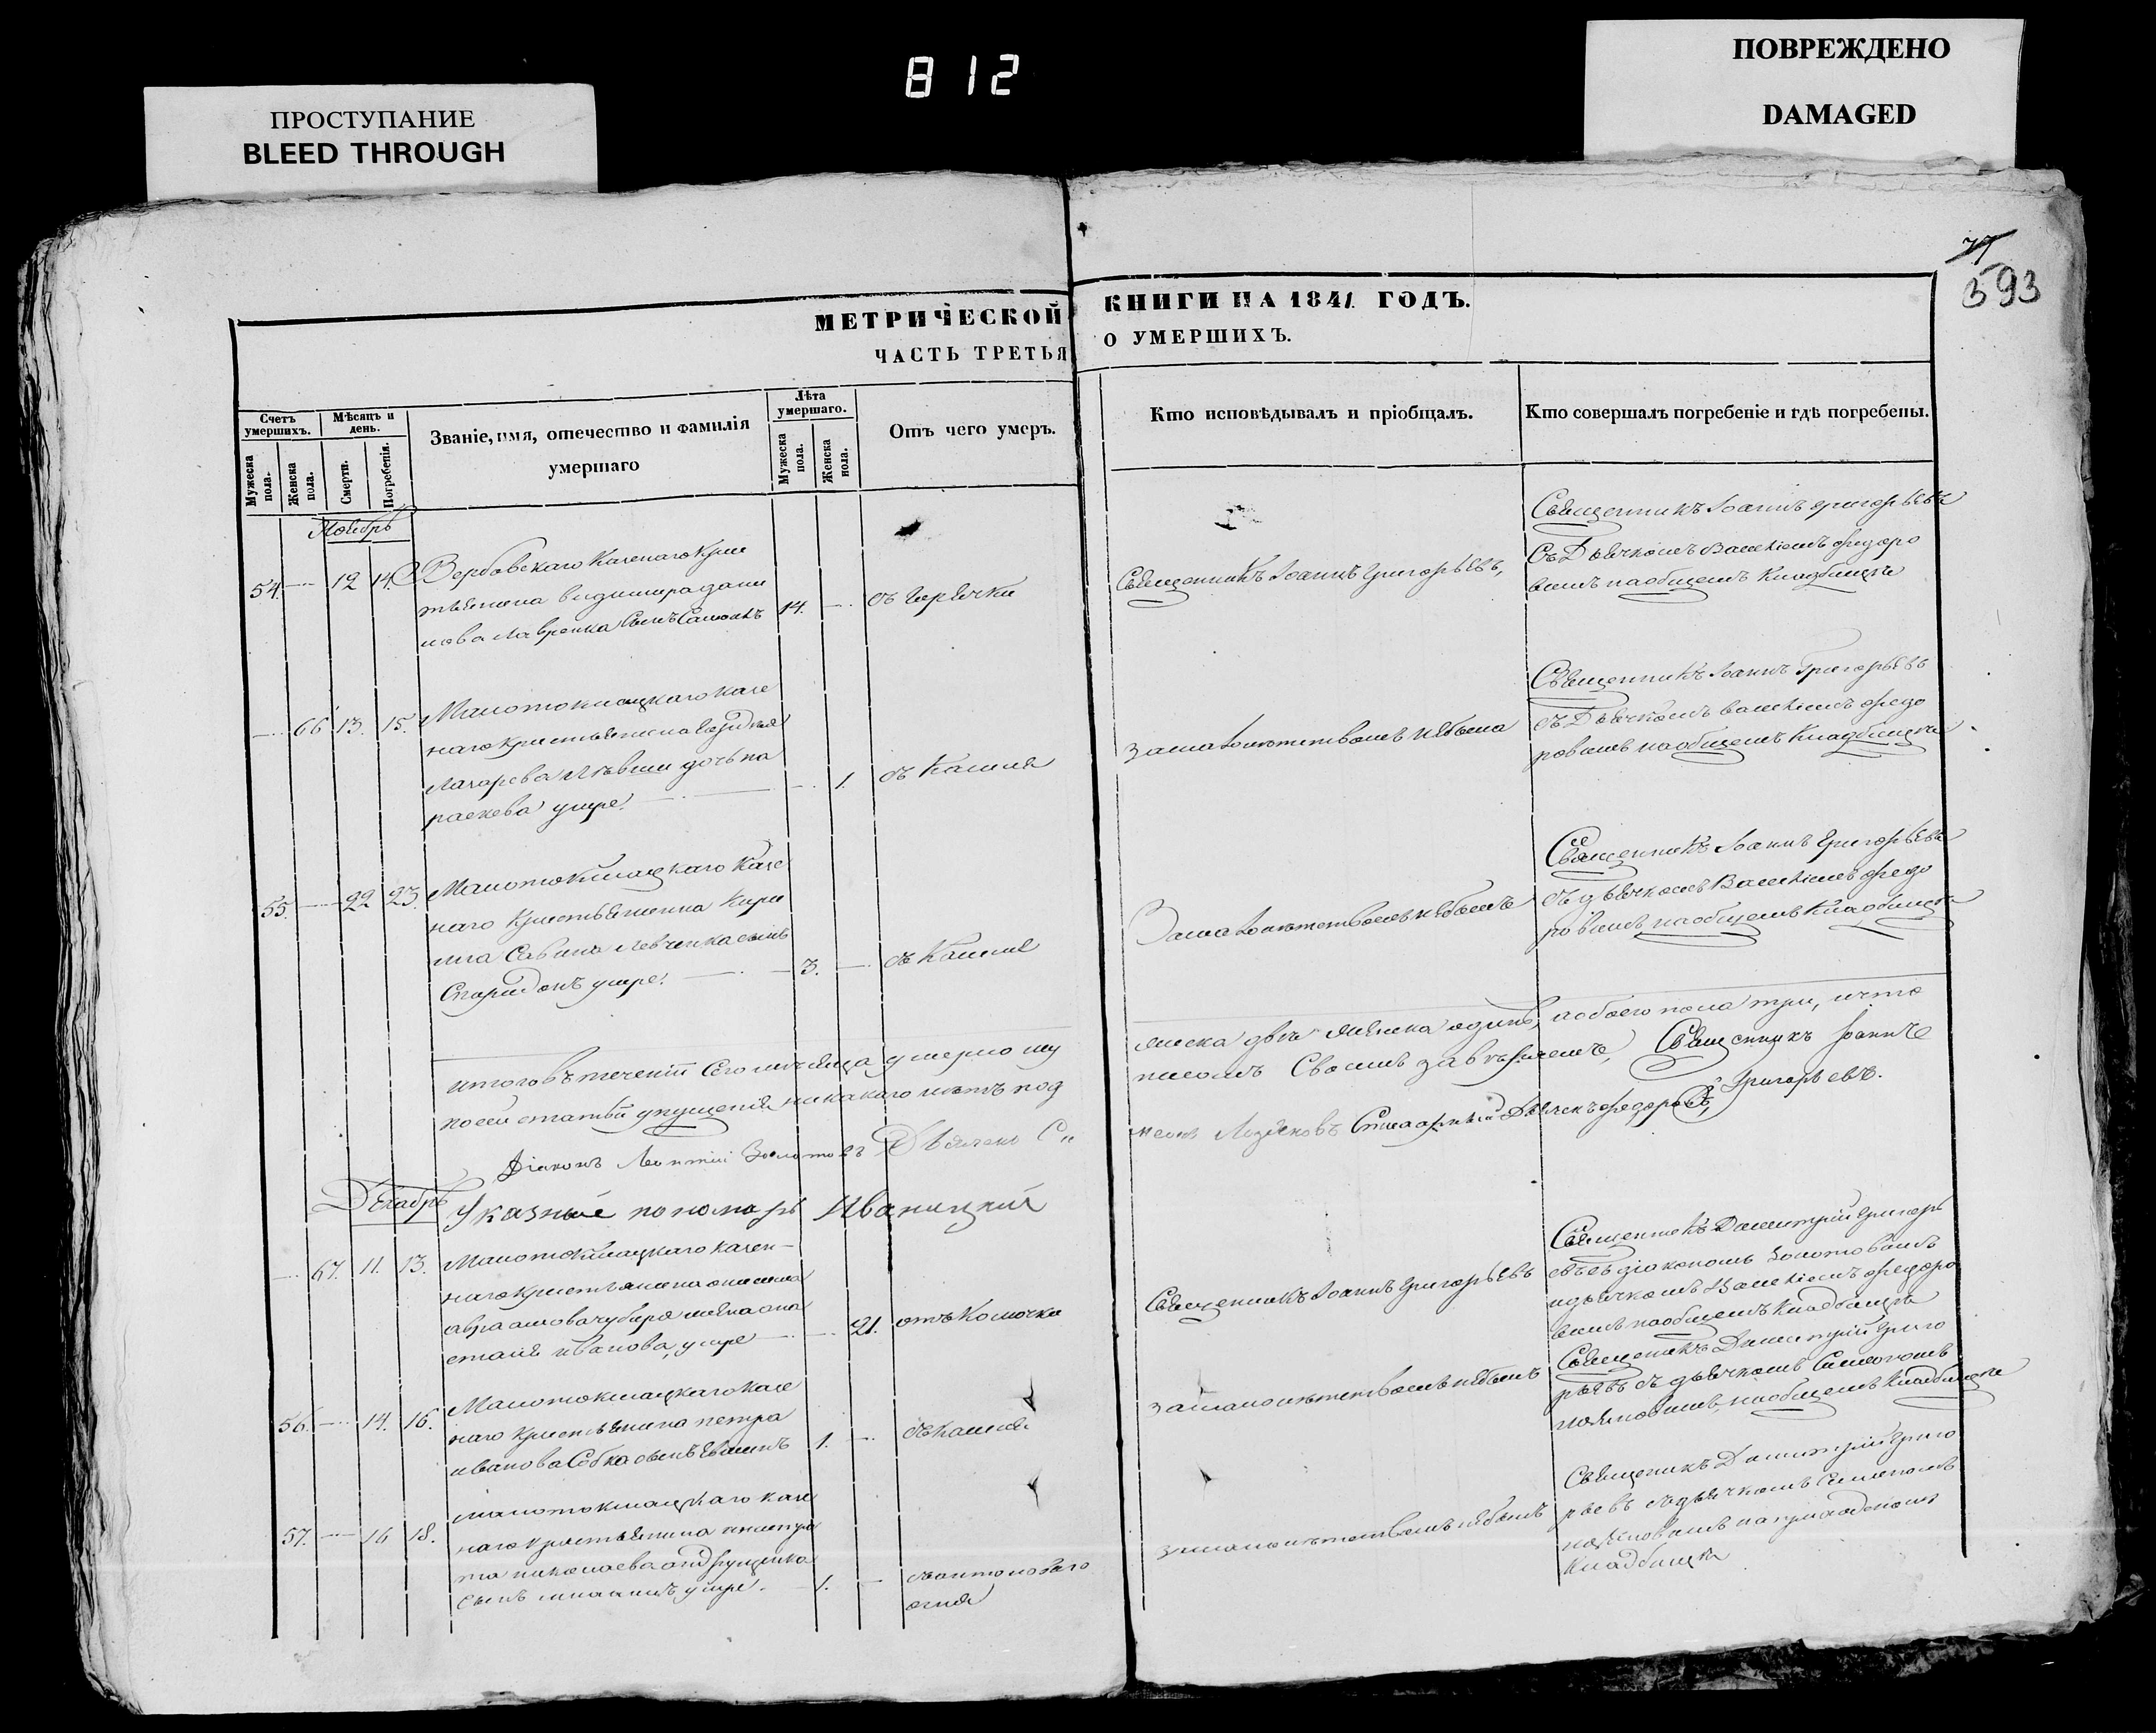 812
ПРОСТУПАНИЕ
BLEED THROUGH
ПОВРЕЖДЕНО
DAMAGED
77
593
МЕТРИЧЕСКОЙ КНИГИ НА 1841 ГОДЪ.
ЧАСТЬ ТРЕТЬЯ О УМЕРШИХЪ.
Счетъ умершихъ.
Мужеска пола.
Женска пола.
Мѣсяцъ и день.
Смерти.
Погребенія.
Званіе, имя, отечество и фамилія
умершаго
Лѣта умершаго.
Мужеска пола.
Женска пола.
Отъ чего умеръ.
Кто исповѣдывалъ и пріобщалъ.
Кто совершалъ погребеніе и гдѣ погребены.
Ноябрь
54. 12 14.
Вербовскаго Казенаго Крес
тьянина
нова Лавренка Сынъ Самоилъ
14.
съ горячки
Священникъ Іоаннъ Григорьевъ,
Священникъ Іоаннъ Григорьевъ
съ Дьячкомъ Федоро
вымъ на общемъ Кладбищѣ
66 13. 15.
Малотокмацкаго казе
наго крестьянина
Лазарева дочь па
раскева умре.
1.
съ Кашля
за малолетствомъ небыла
Священникъ Іоаннъ Григорьевъ
съ Дьячкомъ Федо
ровымъ на общемъ Кладбищѣ
55. 22 23.
Малотокмацкаго Казе
наго Крестьянина Кири
ла Савина Левченка сынъ
Спиридонъ умре.
3.
съ Кашля
За малолетствомъ небылъ
Священникъ Іоаннъ Григорьевъ
съ дьячкомъ Федо
ровымъ на общемъ Кладбищѣ
итого въ теченіи Сего месяца умерло му
жеска два женска одинъ, а обоего пола три, и что
по сей статьи упущенія никакаго нетъ под
писомъ Своимъ завѣряемъ, Священникъ Іоаннъ
Григорьевъ.
Діаконъ Леонтій Золотовъ Дьячекъ Си
меонъ Дьячекъ Федоровъ,
Указный пономарь Иваницкій
Декабрь
67. 11. 13.
Малотокмацкаго казен-
наго крестьянина
авраамова жена ана
стасія иванова, умре
21.
отъ Колочка
Священникъ Іоаннъ Григорьевъ
Священникъ Димитрій Григорь
евъ съ діакономъ Золотовымъ
и дьячкомъ Федоро
вымъ на общемъ Кладбищѣ
56. 14. 16.
Малотокмацкаго казе
наго крестьянина петра
иванова Собка сынъ
1.
съ кашля
за малолетствомъ небылъ
Священникъ Димитрій Григо
рьевъ съ дьячкомъ Симеономъ
на общемъ Кладбищѣ
57. 16 18.
малотокмацкаго казе
наго крестьянина
та николаева андрущенка
сынъ умре.
1.
съ антонового
огня
за малолетствомъ небылъ
Священикъ Димитрій Григо
рьевъ съ дьячкомъ Симеономъ
на приходскомъ
Кладбищѣ